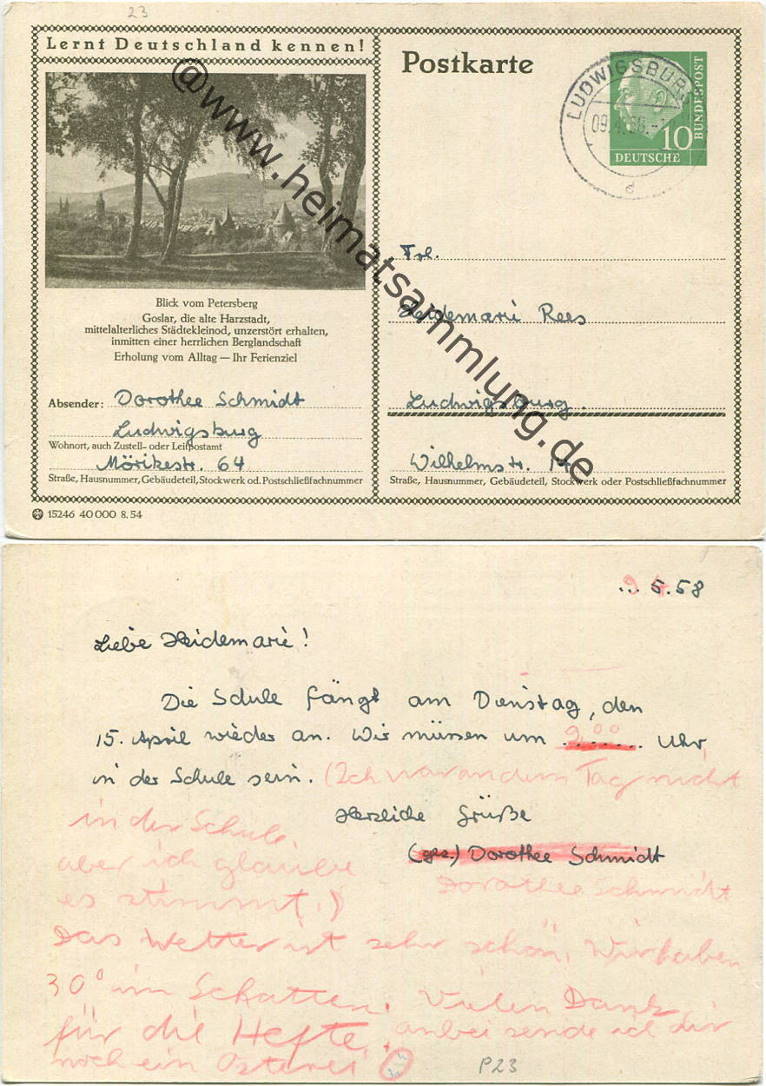 23
Lernt Deutschland kennen!
Postkarte
LUDWIGSBURG
DEUTSCHE
BUNDESPOST
10
@www.heimatsammlung.de
Blick vom Petersberg
Goslar, die alte Harzstadt,
mittelalterliches Städtekleinod, unzerstört erhalten,
inmitten einer herrlichen Berglandschaft
Erholung vom Alltag — Ihr Ferienziel
Absender: Dorothee Schmidt
Ludwigsburg
Wohnort, auch Zustell- oder Leitpostamt
Mörikestr. 64
Straße, Hausnummer, Gebäudeteil, Stockwerk od. Postschließfachnummer
15246 40 000 8. 54
Frl.
Heidemarie Rees
Ludwigsburg.
Wilhelmstr.
Straße, Hausnummer, Gebäudeteil, Stockwerk oder Postschließfachnummer
.58
Liebe Heidemarie!
Die Schule fängt am Dienstag, den
15. April wieder an. Wir müssen um 9.00 Uhr
in der Schule sein. (Ich war an dem Tag nicht
in der Schule,
Herzliche Grüße
aber ich glaube
(gez.) Dorothee Schmidt
es stimmt!)
Dorothee Schmidt
Das Wetter ist sehr schön. Wir haben
30° im Schatten. Vielen Dank
für die Hefte. anbei sende ich dir
noch ein Osterei
P23